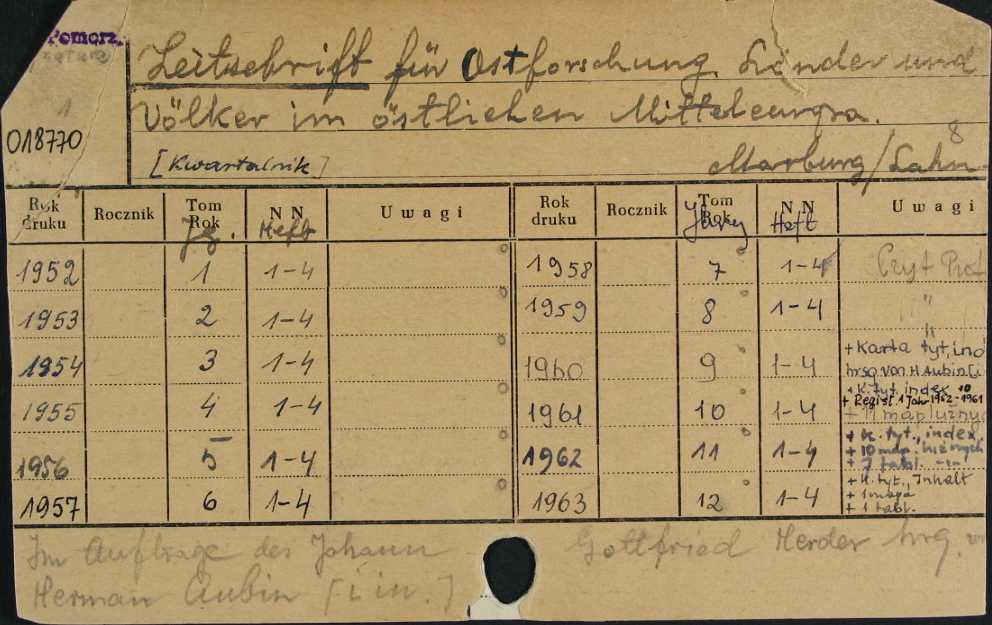 Pomorz.
018770
Zeitschrift für Ostforschung. Länder und
Völker im östlichen Mitteleuropa.
8
[Kwartalnik] Marburg/Lahn
Rok druku Rocznik Tom Rok NN Uwagi Rok druku Rocznik Tom Rok NN Uwagi
Jg. Heft Heft
1952 1 1-4 1958 7 1-4
1953 2 1-4 1959 8 1-4 "
1954 3 1-4 1960 9 1-4 + Karta tyt, ind
hrsg. von H. Aubin [i
1955 4 1-4 1961 10 1-4 + K. tyt. index 10
+ Regist. 1 Jahr 1952-1961
+ 11 map luźnyc
1956 5 1-4 1962 11 1-4 + K. tyt., index
+ 10 map. luźnych
+ 7 tabl. -"-
1957 6 1-4 1963 12 1-4 + K. tyt., Inhalt
+ 1 mapa
+ 1 tabl.
Im Auftrage des Johann Gottfried Herder hrg. v
Herman Aubin [i in.]